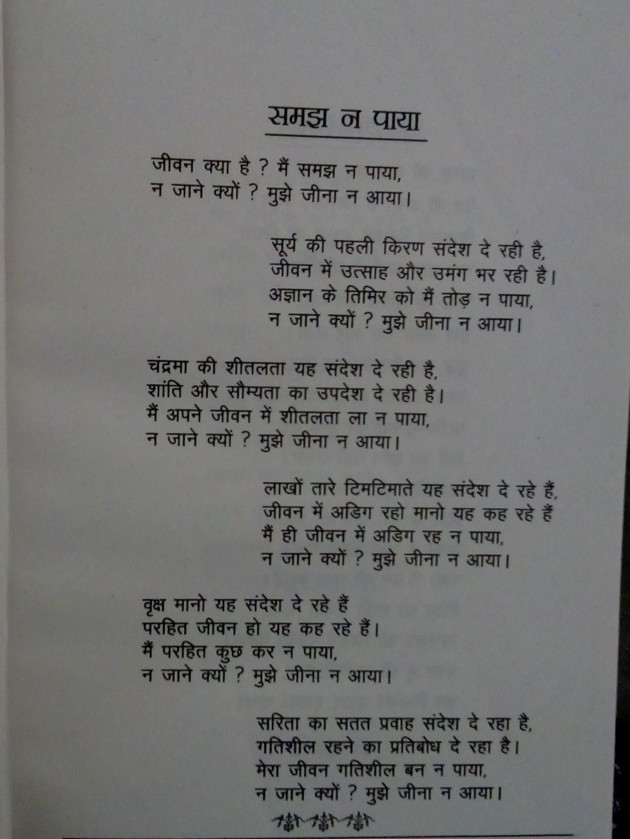 समझ न पाया
जीवन क्या है ? मैं समझ न पाया,
न जाने क्यों ? मुझे जीना न आया।
सूर्य की पहली किरण संदेश दे रही है,
जीवन में उत्साह और उमंग भर रही है।
अज्ञान के तिमिर को मैं तोड़ न पाया,
न जाने क्यों ? मुझे जीना न आया।
चंद्रमा की शीतलता यह संदेश दे रही है,
शांति और सौम्यता का उपदेश दे रही है।
मैं अपने जीवन में शीतलता ला न पाया,
न जाने क्यों ? मुझे जीना न आया।
लाखों तारे टिमटिमाते यह संदेश दे रहे हैं,
जीवन में अडिग रहो मानो यह कह रहे हैं
मैं ही जीवन में अडिग रह न पाया,
न जाने क्यों ? मुझे जीना न आया।
वृक्ष मानो यह संदेश दे रहे हैं
परहित जीवन हो यह कह रहे हैं।
मैं परहित कुछ कर न पाया,
न जाने क्यों ? मुझे जीना न आया।
सरिता का सतत प्रवाह संदेश दे रहा है,
गतिशील रहने का प्रतिबोध दे रहा है।
मेरा जीवन गतिशील बन न पाया,
न जाने क्यों ? मुझे जीना न आया।